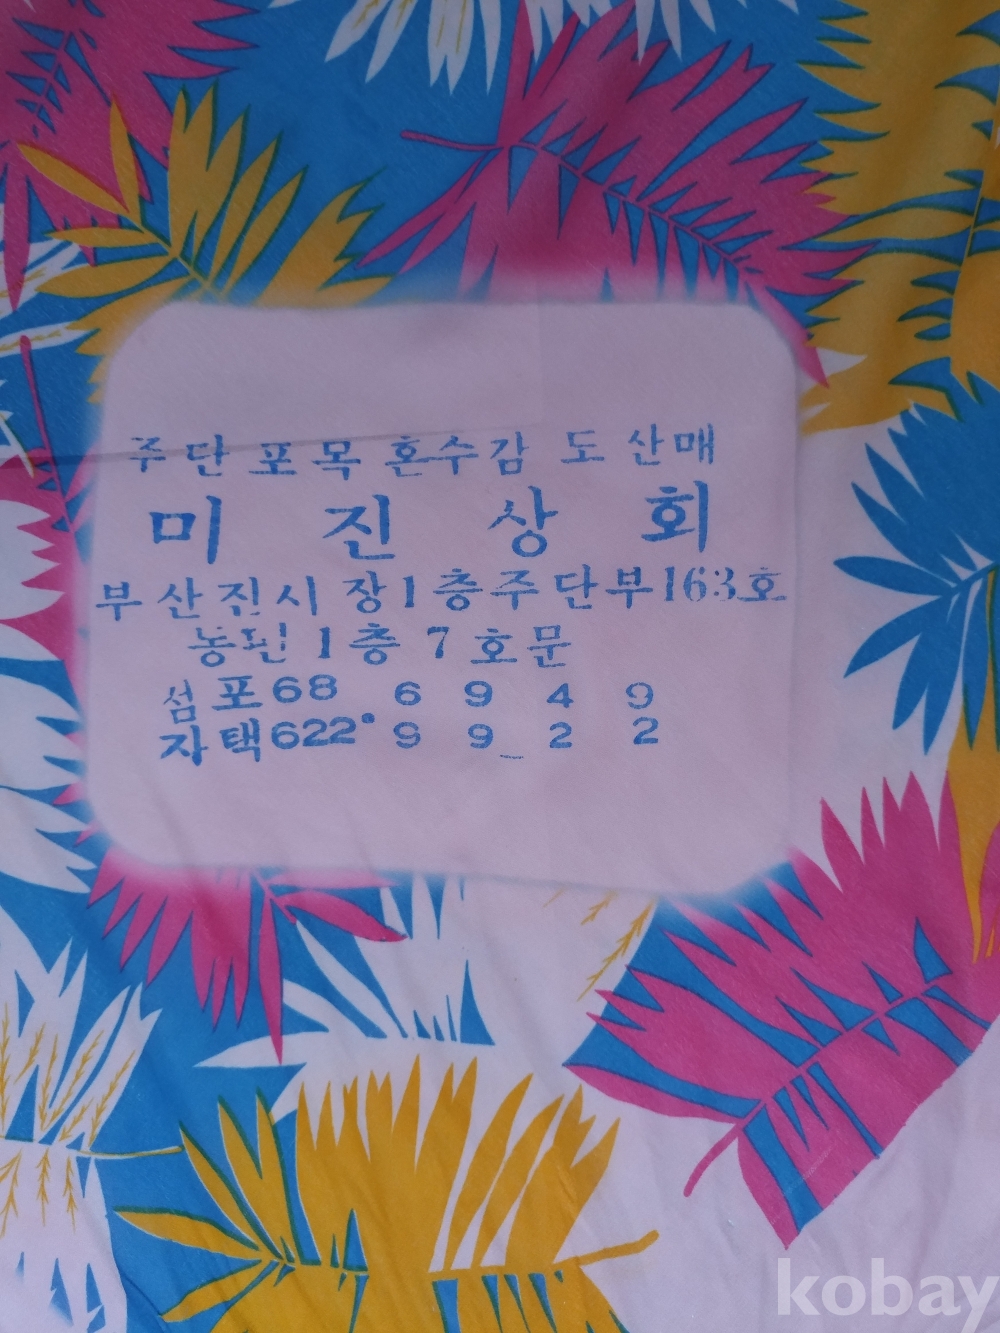 주단 포목 혼수감 도 산매
미 진 상 회
부산진시장1층주단부163호
1층 7호문
점포68 6 9 4 9
자택622 9 9 2 2
kobay